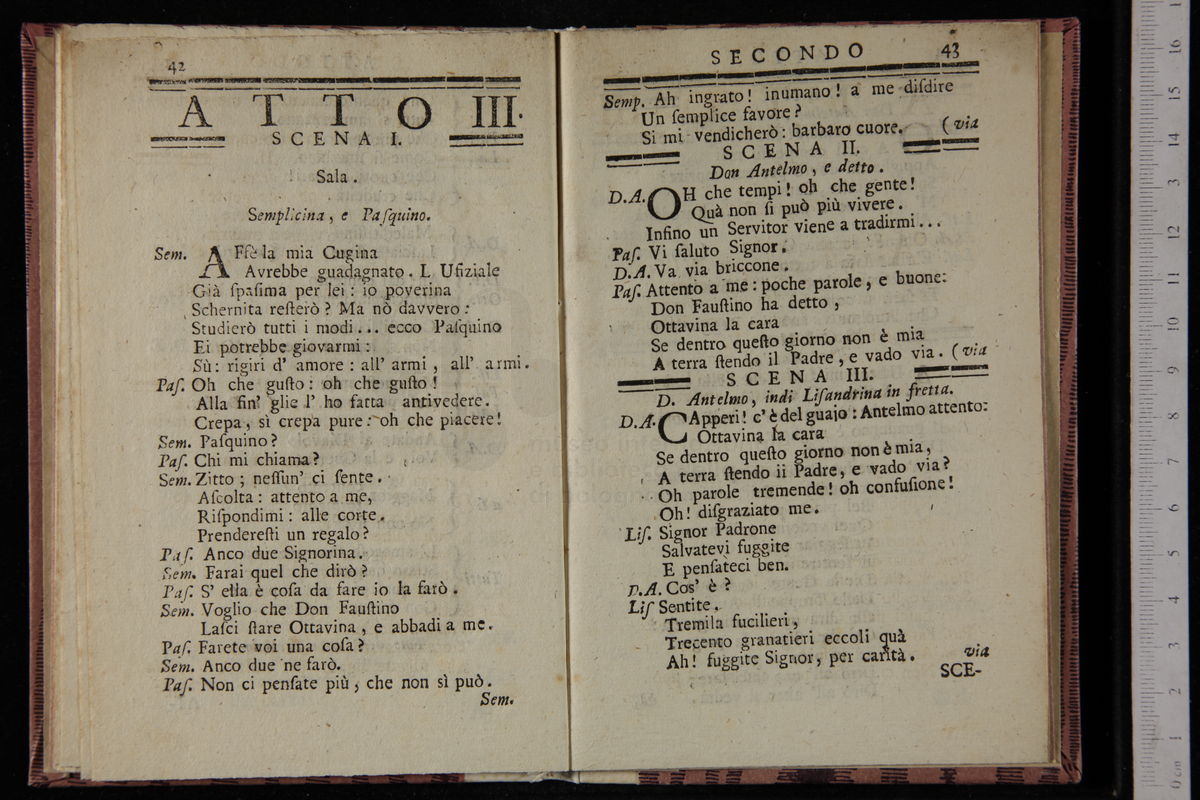 42
ATTO III.
SCENA I.
Sala.
Semplicina, e Paſquino.
Sem. AFfè la mia Cugina
Avrebbe guadagnato. L Ufiziale
Già ſpaſima per lei: io poverina
Schernita reſterò? Ma nò davvero:
Studierò tutti i modi... ecco Paſquino
Ei potrebbe giovarmi:
Sù: rigiri d' amore: all' armi, all' armi.
Paſ. Oh che guſto: oh che guſto!
Alla fin' glie l' ho fatta antivedere.
Crepa, sì crepa pure: oh che piacere!
Sem. Paſquino?
Paſ. Chi mi chiama?
Sem. Zitto; neſſun' ci ſente.
Aſcolta: attento a me,
Riſpondimi: alle corte.
Prendereſti un regalo?
Paſ. Anco due Signorina.
Sem. Farai quel che dirò?
Paſ. S' ella è coſa da fare io la farò.
Sem. Voglio che Don Fauſtino
Laſci ſtare Ottavina, e abbadi a me.
Paſ. Farete voi una coſa?
Sem. Anco due ne farò.
Paſ. Non ci penſate più, che non sì può.
Sem.
SECONDO 43
Semp. Ah ingrato! inumano! a me diſdire
Un ſemplice favore?
Si mi vendicherò: barbaro cuore. (via
SCENA II.
Don Antelmo, e detto.
D.A. OH che tempi! oh che gente!
Quà non ſi può più vivere.
Infino un Servitor viene a tradirmi...
Paſ. Vi ſaluto Signor.
D.A. Va via briccone.
Paſ. Attento a me: poche parole, e buone:
Don Fauſtino ha detto,
Ottavina la cara
Se dentro queſto giorno non è mia
A terra ſtendo il Padre, e vado via. (via
SCENA III.
D. Antelmo, indi Liſandrina in fretta.
D.A. CApperi! c' è del guajo: Antelmo attento:
Ottavina la cara
Se dentro queſto giorno non è mia,
A terra ſtendo ii Padre, e vado via?
Oh parole tremende! oh confuſione!
Oh! diſgraziato me.
Liſ. Signor Padrone
Salvatevi fuggite
E penſateci ben.
D.A. Cos' è?
Liſ Sentite.
Tremila fucilieri,
Trecento granatieri eccoli quà
Ah! fuggite Signor, per carità. via
SCE-